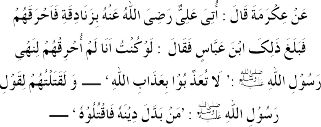 عَنْ عِكْرَمَةَ قَالَ : أُتِىَ عَلِىٌّ رَضِىَ اللّٰهُ عَنْهُ بِزَنَادِقَةٍ فَاَحْرَقَهُمْ
فَبَلَغَ ذٰلِکَ ابْنَ عَبَّاسٍ فَقَالَ : لَوْ كُنْتُ اَنَا لَمْ اُحْرِقْهُمْ لِنَهْىِ
رَسُوْلِ اللّٰهِ ﷺ : ’لَا تُعَذِّبُوْا بِعَذَابِ اللّٰهِ‘ ــــ وَ لَقَتَلْتُهُمْ لِقَوْلِ
رَسُوْلِ اللّٰهِ ﷺ : ’مَنْ بَدَّلَ دِيْنَهٗ فَاقْتُلُوْهُ‘ ــــ